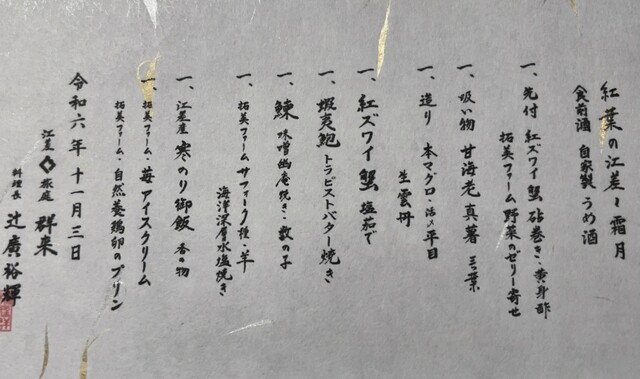 紅葉の江差〜霜月
食前酒 自家製 うめ酒
一、先付 紅ズワイ蟹 砧巻き・黄身酢
拓美ファーム 野菜のゼリー寄せ
一、吸い物 甘海老真薯 三つ葉
一、造り 本マグロ・活〆平目
生雲丹
一、紅ズワイ蟹 塩茹で
一、蝦夷鮑 トラピストバター焼き
一、鰊 味噌幽庵焼き・数の子
一、拓美ファーム サフォーク種・羊
海洋深層水塩焼き
一、江差産 寒のり御飯 香の物
一、拓美ファーム・苺アイスクリーム
拓美ファーム・自然養鶏卵のプリン
令和六年十一月三日
江差 旅庭 群来
料理長 辻廣裕輝